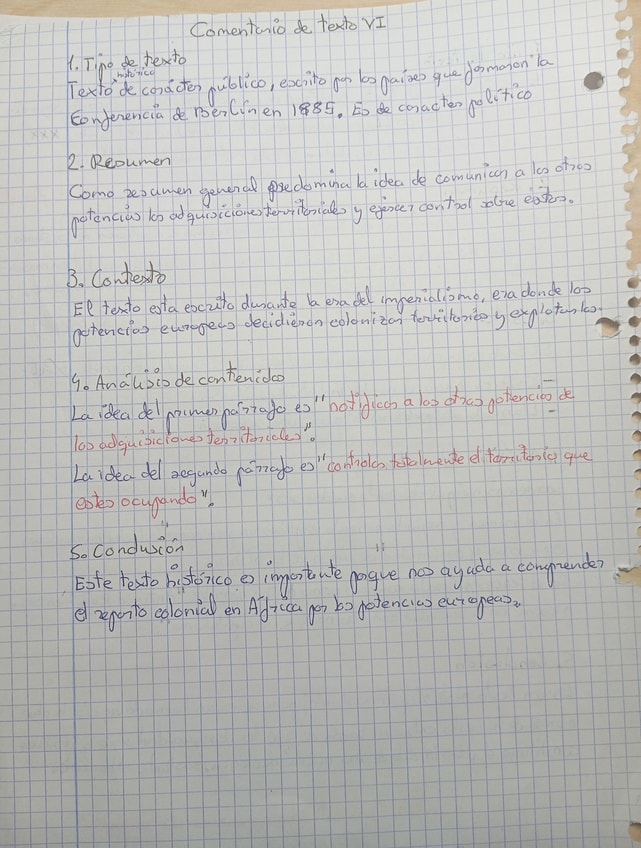 Comentario de texto VI
1. Tipo de texto
histórico
Texto de carácter público, escrito por los países que formaron la
Conferencia de Berlín en 1885. Es de caracter político
2. Resumen
Como resumen general predomina la idea de comunicar a las otras
potencias las adquisiciones territoriales y ejercer control sobre estos.
3. Contexto
El texto esta escrito durante la era del imperialismo, era donde las
potencias europeas decidieron colonizar territorios y explotarlos.
4. Análisis de contenido
La idea del primer párrafo es "notificar a las otras potencias de
las adquisiciones territoriales".
La idea del segundo párrafo es "controlar totalmente el territorio que
estes ocupando".
5. Conclusión
Este texto histórico es importante porque nos ayuda a comprender
el reparto colonial en África por las potencias europeas.